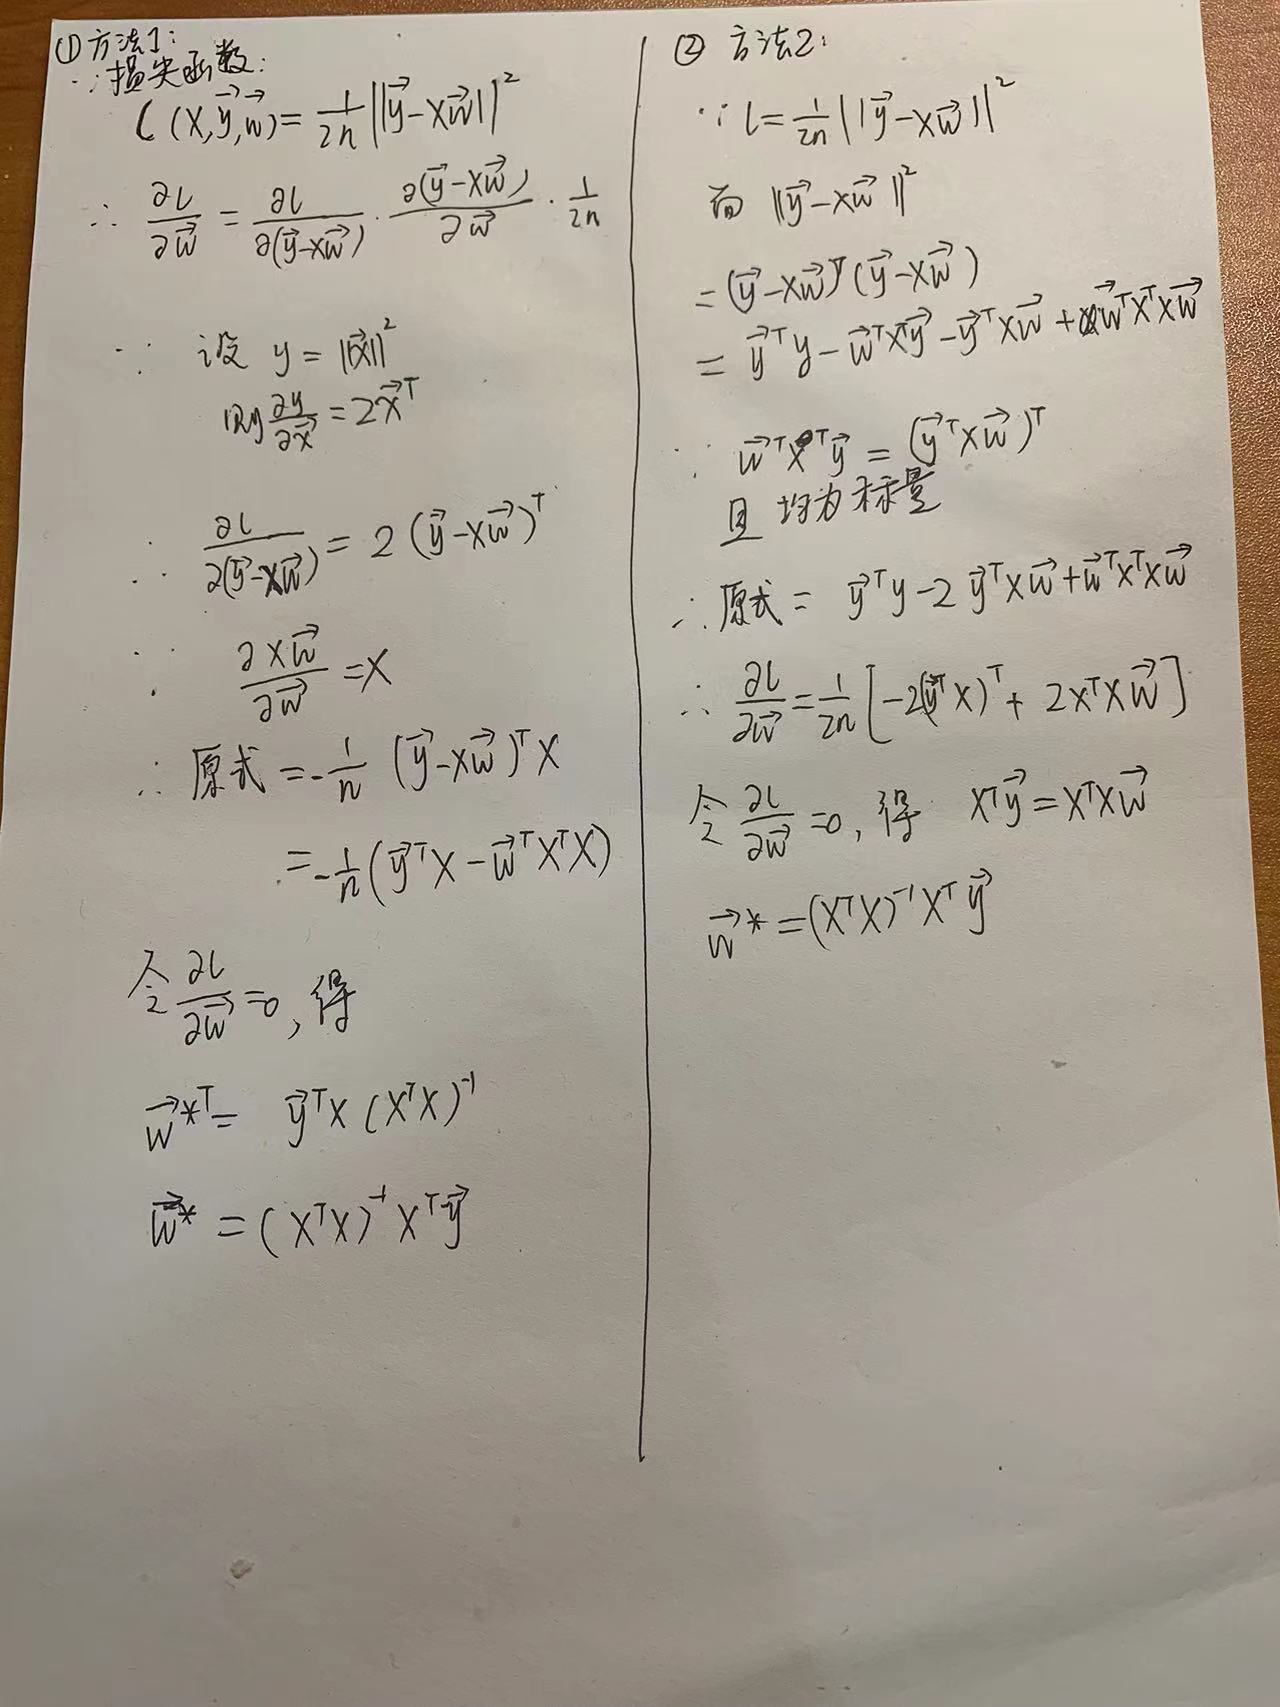 ① 方法1:
∵ 损失函数:
L(X,y⃗,w⃗) = 1/2n ||y⃗-Xw⃗||²
∴ ∂L/∂w⃗ = ∂L/∂(y⃗-Xw⃗) · ∂(y⃗-Xw⃗)/∂w⃗ · 1/2n
∵ 设 y = ||x⃗||²
则 ∂y/∂x⃗ = 2x⃗ᵀ
∴ ∂L/∂(y⃗-Xw⃗) = 2(y⃗-Xw⃗)ᵀ
∵ ∂Xw⃗/∂w⃗ = X
∴ 原式 = -1/n (y⃗-Xw⃗)ᵀX
= -1/n (y⃗ᵀX - w⃗ᵀXᵀX)
令 ∂L/∂w⃗ = 0, 得
w⃗*ᵀ = y⃗ᵀX(XᵀX)⁻¹
w⃗* = (XᵀX)⁻¹Xᵀy⃗
② 方法2:
∵ L = 1/2n ||y⃗-Xw⃗||²
而 ||y⃗-Xw⃗||²
= (y⃗-Xw⃗)ᵀ(y⃗-Xw⃗)
= y⃗ᵀy - w⃗ᵀXᵀy⃗ - y⃗ᵀXw⃗ + w⃗ᵀXᵀXw⃗
∵ w⃗ᵀXᵀy⃗ = (y⃗ᵀXw⃗)ᵀ
且 均为标量
∴ 原式 = y⃗ᵀy - 2y⃗ᵀXw⃗ + w⃗ᵀXᵀXw⃗
∴ ∂L/∂w⃗ = 1/2n [-2(y⃗ᵀX)ᵀ + 2XᵀXw⃗]
令 ∂L/∂w⃗ = 0, 得 Xᵀy⃗ = XᵀXw⃗
w⃗* = (XᵀX)⁻¹Xᵀy⃗